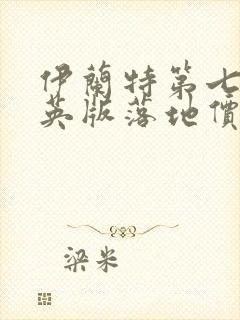 伊蘭特第七
英版落地價
梁米